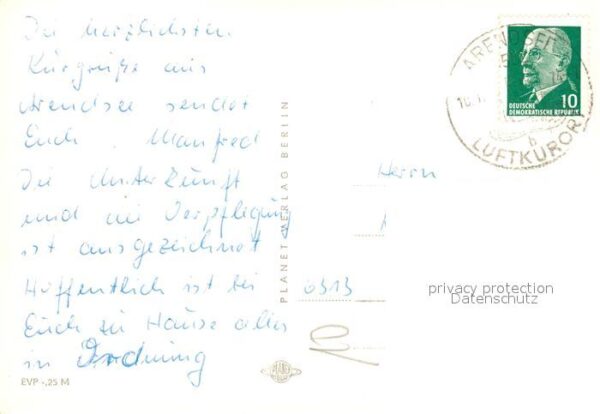 Die herzlichsten
Kurgrüße aus
Arendsee sendet
Euch Manfred
Die Unterkunft
und die Verpflegung
ist ausgezeichnet
Hoffentlich ist bei
Euch zu Hause alles
in Ordnung
EVP -,25 M
PLANET-VERLAG BERLIN
PLANET
ARENDSEE
10.
LUFTKURORT
b
DEUTSCHE
DEMOKRATISCHE REPUBLIK
10
Herrn
6313
privacy protection
Datenschutz